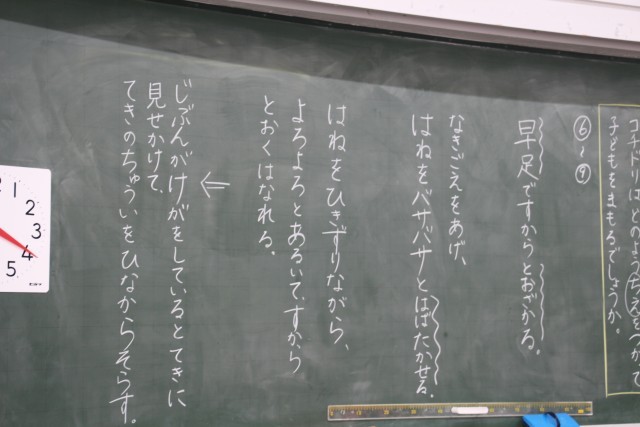 コチドリはどのようなちえをつかって
子どもをまもるでしょうか。
⑥〜⑨
早足ですからとおざかる。
なきごえをあげ、
はねをバサバサとはばたかせる。
はねをひきずりながら、
よろよろとあるいて、すから
とおくはなれる。
⇐
じぶんがけがをしているとてきに
見せかけて、
てきのちゅういをひなからそらす。
1
2
3
4
5